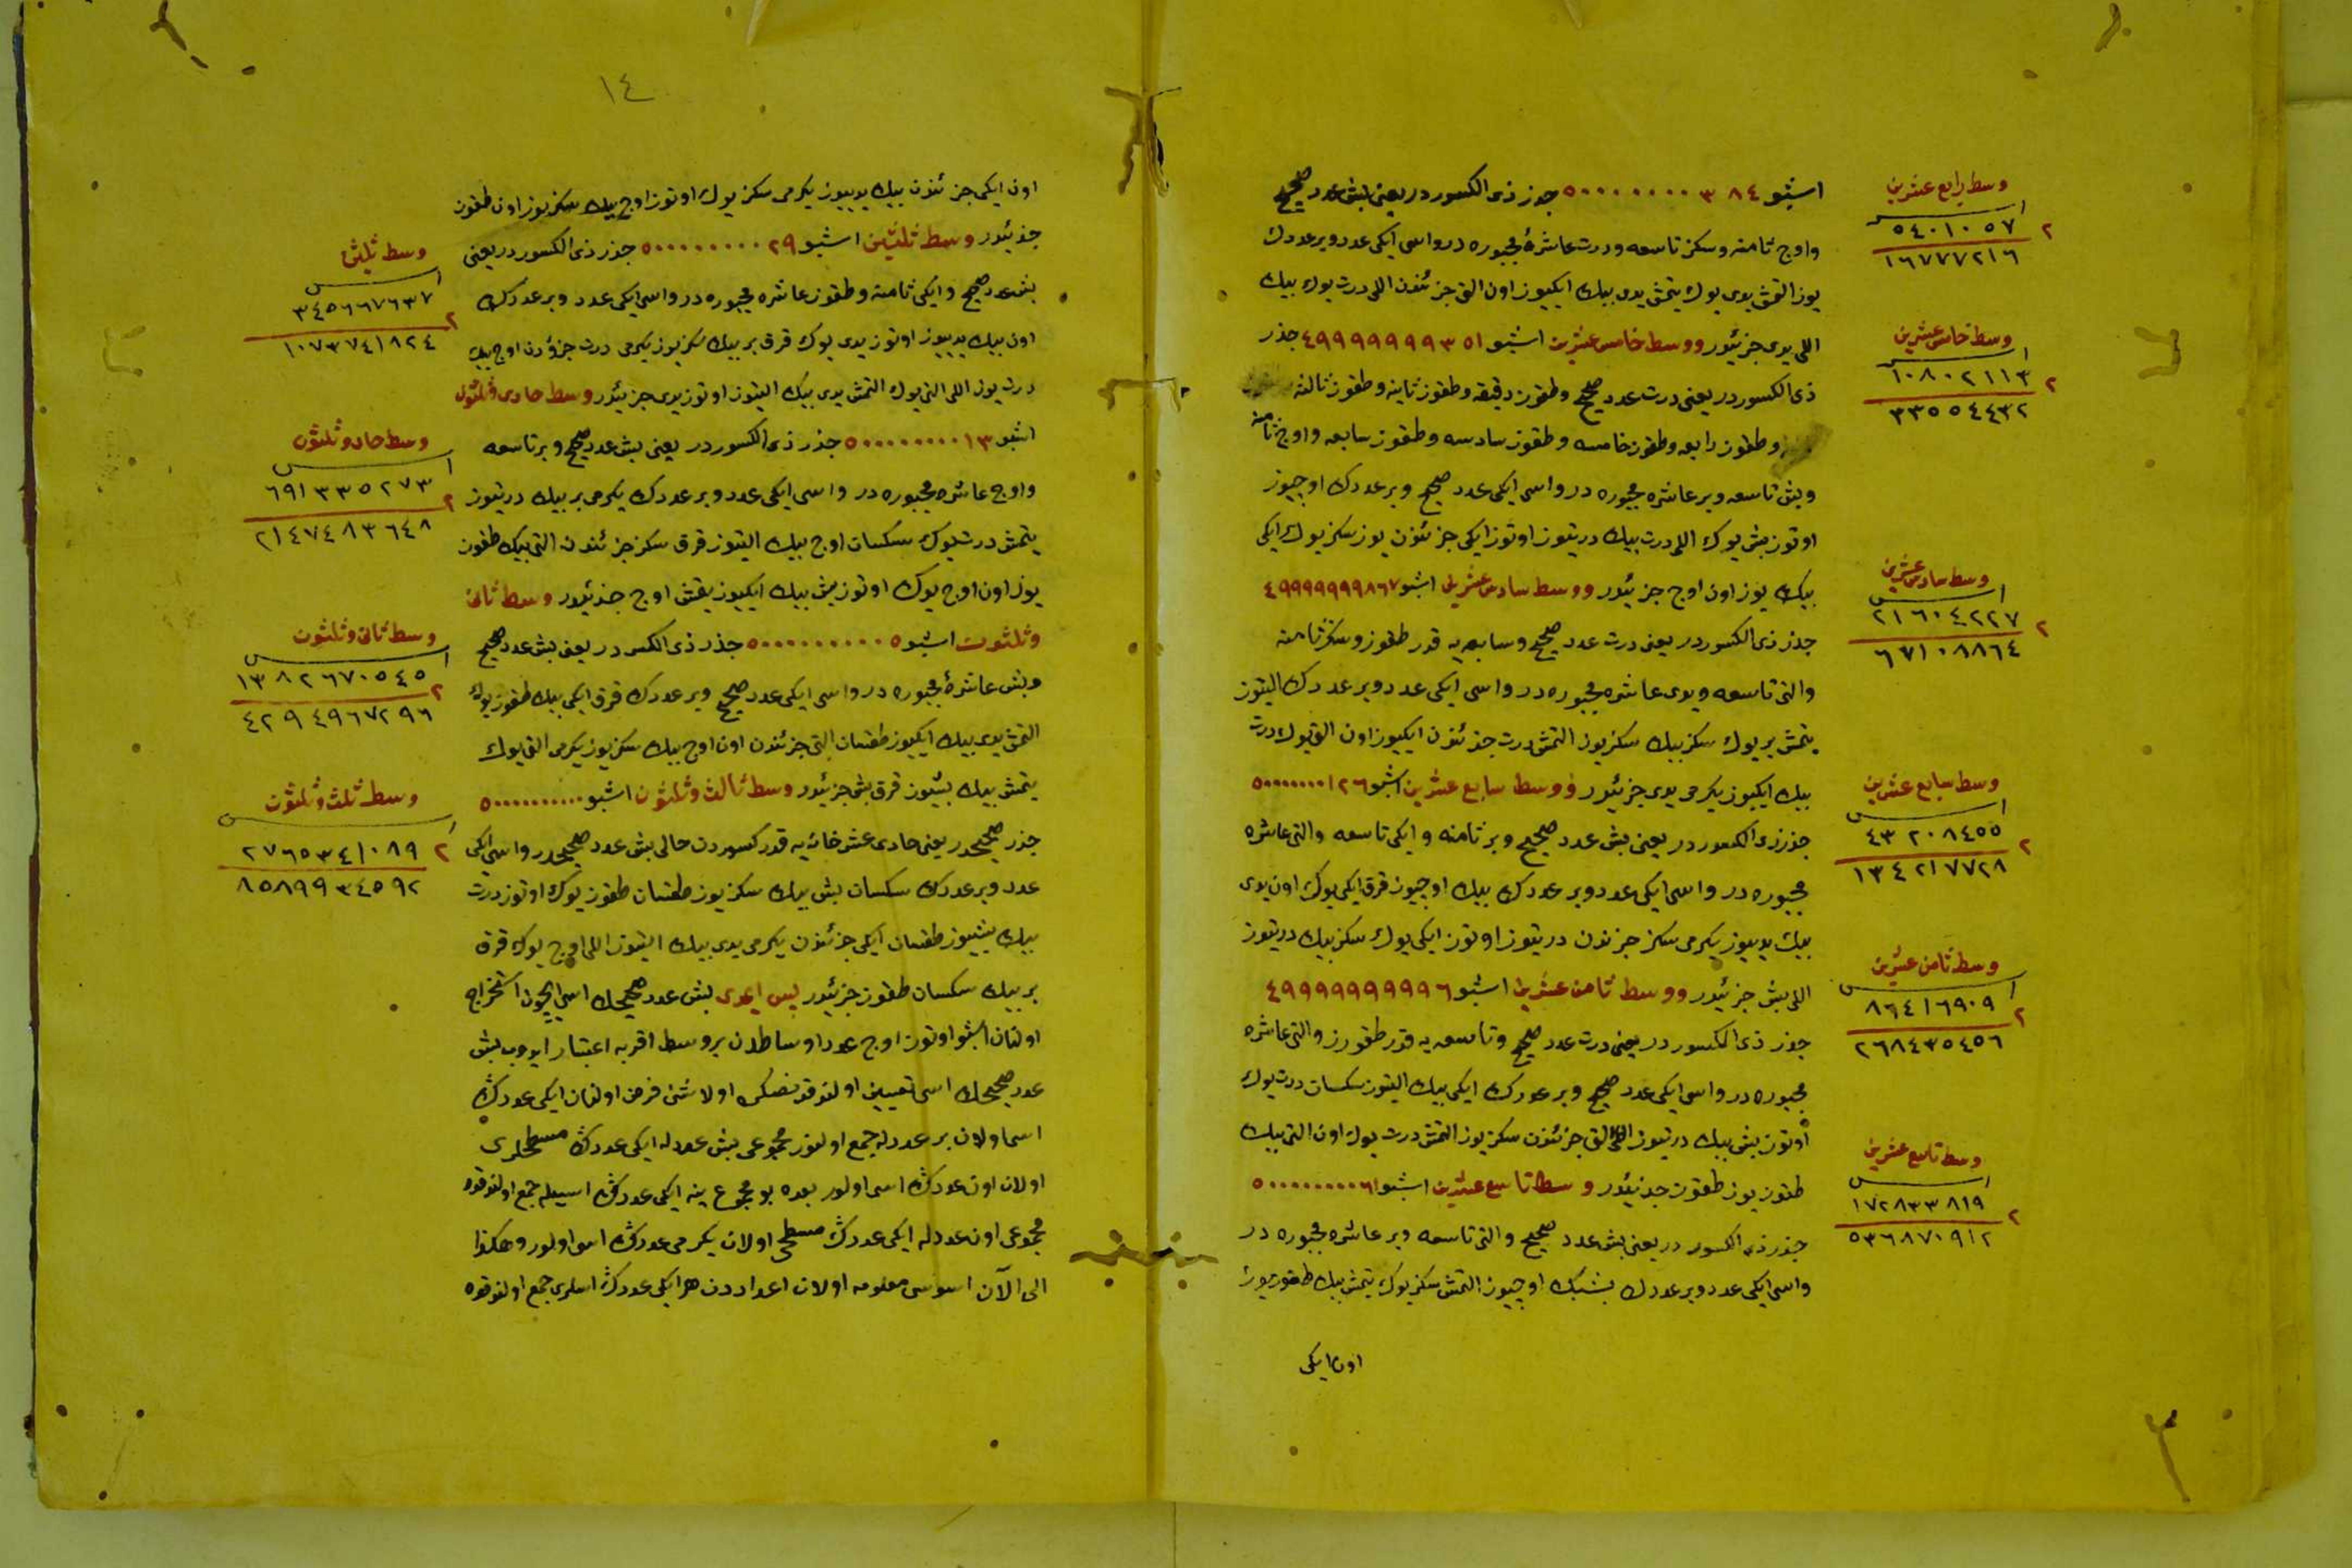 وسط رابع عشرین
اس
٢ ٥٤٠١٠٥٧
١٦٧٧٧٢١٦
وسط خامس عشرین
اس
٢ ١٠٨٠٢١١٣
٣٣٥٥٤٤٣٢
وسط سادس عشرین
اس
٢ ٢١٦٠٤٢٢٧
٦٧١٠٨٨٦٤
وسط سابع عشرین
اس
٢ ٤٣٢٠٨٤٥٥
١٣٤٢١٧٧٢٨
وسط ثامن عشرین
اس
٢ ٨٦٤١٦٩٠٩
٢٦٨٤٣٥٤٥٦
وسط تاسع عشرین
اس
٢ ١٧٢٨٣٣٨١٩
٥٣٦٨٧٠٩١٢
اشبو ٥٠٠٠٠٠٠٠٣٨٤ جذر ذی الکسور در یعنی بش عدد صحیح
واوچ ثامنه وسکز تاسعه ودرت عاشرۀ مجبوره در واسی ایکی عدد وبر عددك
یوز التمش یدی یوك یتمش یدی بیك ایکیوز اون التی جزئندن اللی درت یوك بیك
اللی یدی جزئیدر ووسط خامس عشرین اشبو ٤٩٩٩٩٩٩٩٣٥١ جذر
ذی الکسور در یعنی درت عدد صحیح وطقوز دقیقه وطقوز ثانیه وطقوز ثالثه
وطقوز رابعه وطقوز خامسه وطقوز سادسه وطقوز سابعه واوچ ثامنه
وبش تاسعه وبر عاشره مجبوره در واسی ایکی عدد صحیح وبر عددك اوچیوز
اوتوز بش یوك اللی درت بیك درتیوز اوتوز ایکی جزئندن یوز سکز یوك ایکی
بیك یوز اون اوچ جزئیدر ووسط سادس عشرین اشبو ٤٩٩٩٩٩٩٩٨٦٧
جذر ذی الکسور در یعنی درت عدد صحیح وسابعه یه قدر طقوز وسکز ثامنه
والتی تاسعه ویدی عاشره مجبوره در واسی ایکی عدد وبر عددك التیوز
یتمش بر یوك سکز بیك سکز یوز التمش درت جزئندن ایکیوز اون التی یوك درت
بیك ایکیوز یکرمی یدی جزئیدر ووسط سابع عشرین اشبو ٥٠٠٠٠٠٠٠١٢٦
جذر ذی الکسور در یعنی بش عدد صحیح وبر ثامنه وایکی تاسعه والتی عاشره
مجبوره در واسی ایکی عدد وبر عددك بیك اوچیوز قرق ایکی یوك اون یدی
بیك یدییوز یکرمی سکز جزئندن درتیوز اوتوز ایکی یوك سکز بیك درتیوز
اللی بش جزئیدر ووسط ثامن عشرین اشبو ٤٩٩٩٩٩٩٩٩٩٦
جذر ذی الکسور در یعنی درت عدد صحیح وتاسعه یه قدر طقوز والتی عاشره
مجبوره در واسی ایکی عدد صحیح وبر عددك ایکی بیك التیوز سکسان درت یوك
اوتوز بش بیك درتیوز اللی التی جزئندن سکز یوز التمش درت یوك اون التی بیك
طقوز یوز طقوز جزئیدر وسط تاسع عشرین اشبو ٥٠٠٠٠٠٠٠٠٦١
جذر ذی الکسور در یعنی بش عدد صحیح والتی تاسعه وبر عاشره مجبوره در
واسی ایکی عدد وبر عددك بشبیك اوچیوز التمش سکز یوك یتمش بیك طقوزیوز
اون ایکی
١٤
اون ایکی جزئندن بیك یدییوز یکرمی سکز یوك اوتوز اوچ بیك سکز یوز اون طقوز
جزئیدر وسط ثلثین اشبو ٥٠٠٠٠٠٠٠٠٢٩ جذر ذی الکسور در یعنی
بش عدد صحیح وایکی ثامنه وطقوز عاشره مجبوره در واسی ایکی عدد وبر عددك
اون بیك یدییوز اوتوز یدی یوك قرق بر بیك سکز یوز یکرمی درت جزؤدن اوچ بیك
درت یوز اللی التی یوك التمش یدی بیك التیوز اوتوز یدی جزئیدر وسط حادی وثلثون
اشبو ٥٠٠٠٠٠٠٠٠١٣ جذر ذی الکسور در یعنی بش عدد صحیح وبر تاسعه
واوچ عاشره مجبوره در واسی ایکی عدد وبر عددك یکرمی بر بیك درتیوز
یتمش درت یوك سکسان اوچ بیك التیوز قرق سکز جزئندن التی بیك طقوز
یوز اون اوچ یوك اوتوز بش بیك ایکیوز یتمش اوچ جزئیدر وسط ثانی
وثلثون اشبو ٥٠٠٠٠٠٠٠٠٠٥ جذر ذی الکسور در یعنی بش عدد صحیح
وبش عاشرۀ مجبوره در واسی ایکی عدد صحیح وبر عددك قرق ایکی بیك طقوز یوز
التمش یدی بیك ایکیوز طقسان التی جزئندن اون اوچ بیك سکز یوز یکرمی التی یوك
یتمش بیك بشیوز قرق بش جزئیدر وسط ثالث وثلثون اشبو ٥٠٠٠٠٠٠٠٠٠٠
جذر صحیحدر یعنی حادی عشر خانه یه قدر کسوردن خالی بش عدد صحیحدر واسی ایکی
عدد وبر عددك سکسان بش بیك سکز یوز طقسان طقوز یوك اوتوز درت
بیك بشیوز طقسان ایکی جزئندن یکرمی یدی بیك التیوز اللی اوچ یوك قرق
بر بیك سکسان طقوز جزئیدر پس ایمدی بش عدد صحیحك اسی ایچون استخراج
اولنان اشبو اوتوز اوچ عدد اوساطدن بر وسط اقربه اعتبار ایدوب بش
عدد صحیحك اسی تعیین اولندقدنصکره اولا شئ فرض اولنان ایکی عددڭ
اسی اولان بر عددله جمع اولنور مجموعی بش عددله ایکی عددڭ مسطحلری
اولان اون عددڭ اسی اولور بعده بو مجموع ینه ایکی عددڭ اسیله جمع اولندقده
مجموعی اون عددله ایکی عددڭ مسطحی اولان یکرمی عددڭ اسی اولور وهکذا
الی الآن اسوسی معلومه اولان اعداددن هر ایکی عددڭ اسلری جمع اولندقده
وسط ثلثون
اس
٢ ٣٤٥٦٦٧٦٣٧
١٠٧٣٧٤١٨٢٤
وسط حادی وثلثون
اس
٢ ٦٩١٣٣٥٢٧٣
٢١٤٧٤٨٣٦٤٨
وسط ثانی وثلثون
اس
٢ ١٣٨٢٦٧٠٥٤٥
٤٢٩٤٩٦٧٢٩٦
وسط ثلث وثلثون
اس
٢ ٢٧٦٥٣٤١٠٨٩
٨٥٨٩٩٣٤٥٩٢